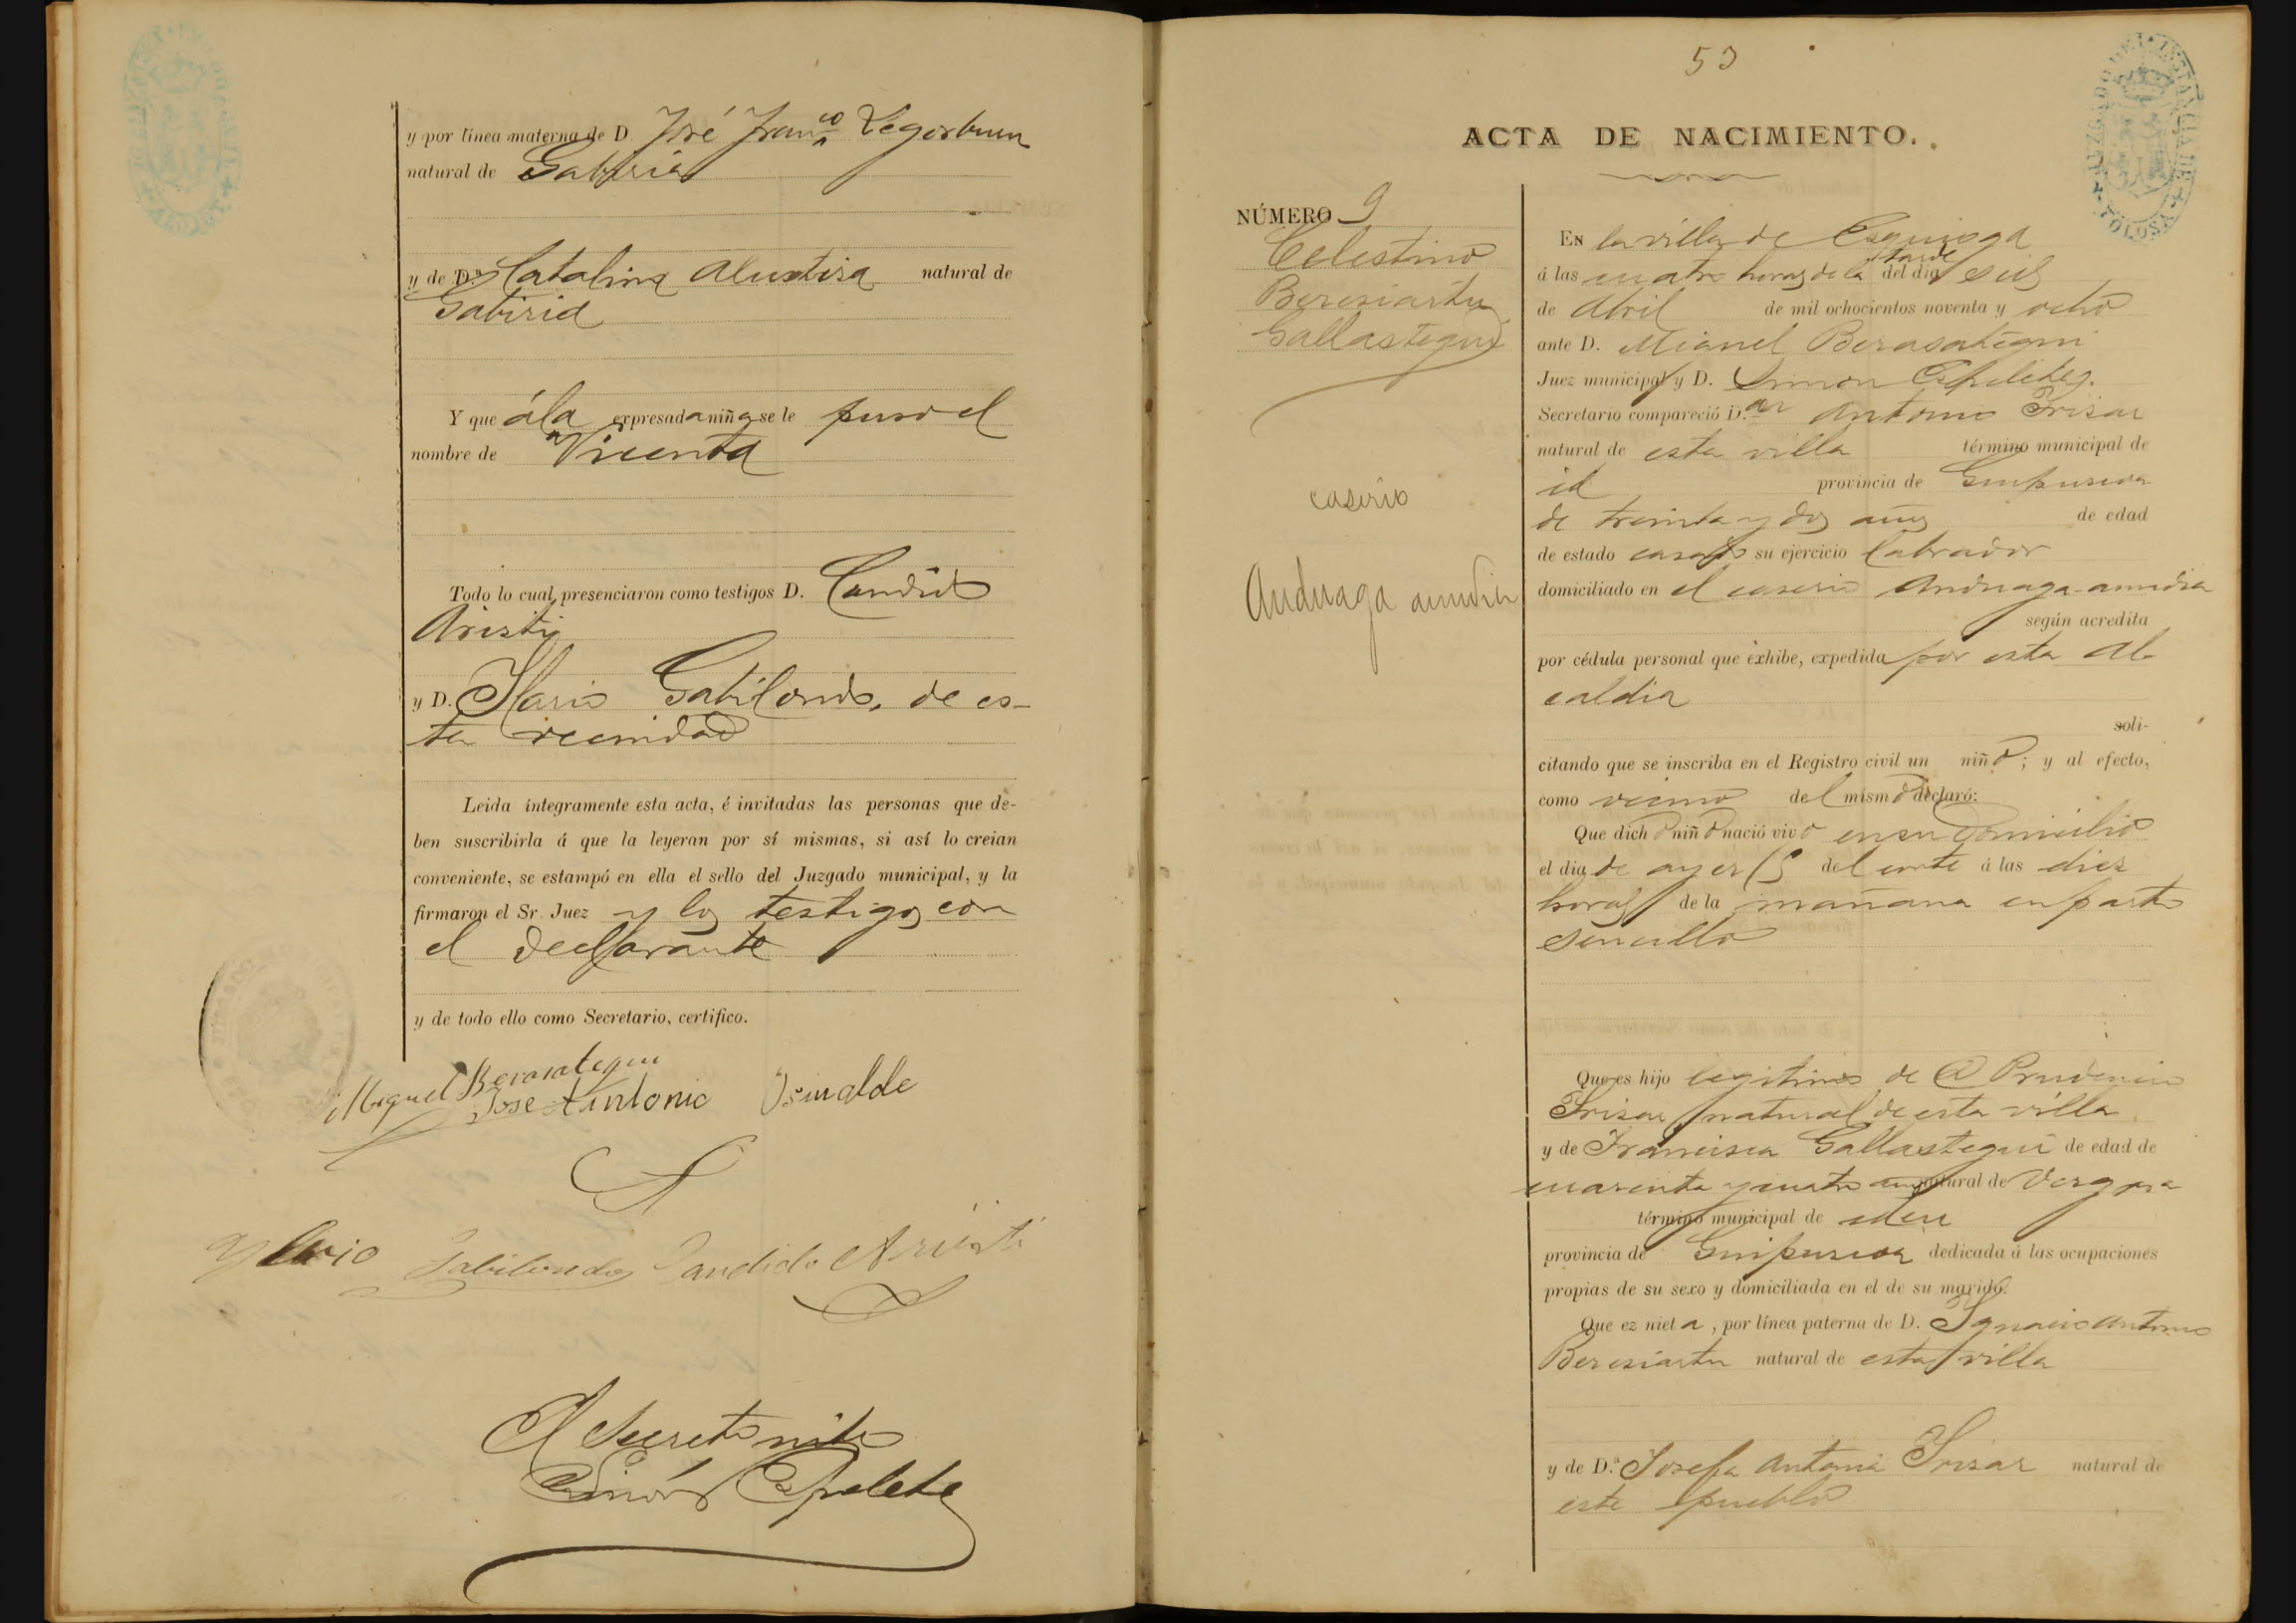 y por línea materna de D. José Fran.co Legorburu
natural de Gabiria
y de D.ª Catalina Alustiza natural de
Gabiria
Y que á la expresada niña se le puso el
nombre de Vicenta
Todo lo cual presenciaron como testigos D. Candido
Aristi
y D. Ylario Gabilondo, de es-
ta vecindad
Leida íntegramente esta acta, é invitadas las personas que de-
ben suscribirla á que la leyeran por sí mismas, si así lo creian
conveniente, se estampó en ella el sello del Juzgado municipal, y la
firmaron el Sr. Juez y los testigos con
el declarante
y de todo ello como Secretario, certifico.
Miguel Berasategui
Jose Antonio
Ylario Gabilondo Candido Aristi
El Secretario
Simón Espeleta
53
ACTA DE NACIMIENTO.
JUZGADO DE 1.ª INSTANCIA DE TOLOSA
NÚMERO 9
Celestino
Beresiartu
Gallastegui
caserio
Anduaga aundia
En la villa de Esquioga
á las cuatro horas de la tarde del dia seis
de Abril de mil ochocientos noventa y ocho
ante D. Miguel Berasategui
Juez municipal y D. Simon Espeleta.
Secretario compareció D. Antonio Irisar
natural de esta villa término municipal de
id provincia de Guipuscoa
de treinta y dos años de edad
de estado casado su ejercicio labrador
domiciliado en el caserio Anduaga-aundia
según acredita
por cédula personal que exhibe, expedida por esta Al-
caldia
soli-
citando que se inscriba en el Registro civil un niño; y al efecto,
como vecino del mismo declaró:
Que dicho niño nació vivo en su domicilio
el dia de ayer 5 del corte á las diez
horas de la mañana en parto
sencillo
Que es hijo legitimo de Prudencio
Irisar natural de esta villa
y de Francisca Gallastegui de edad de
cuarenta y cuatro años natural de Vergara
término municipal de idem
provincia de Guipuscoa dedicada á las ocupaciones
propias de su sexo y domiciliada en el de su marido.
Que ez nieta, por línea paterna de D. Ignacio Antonio
Beresiartu natural de esta villa
y de D.ª Josefa Antonia Irisar natural de
este pueblo